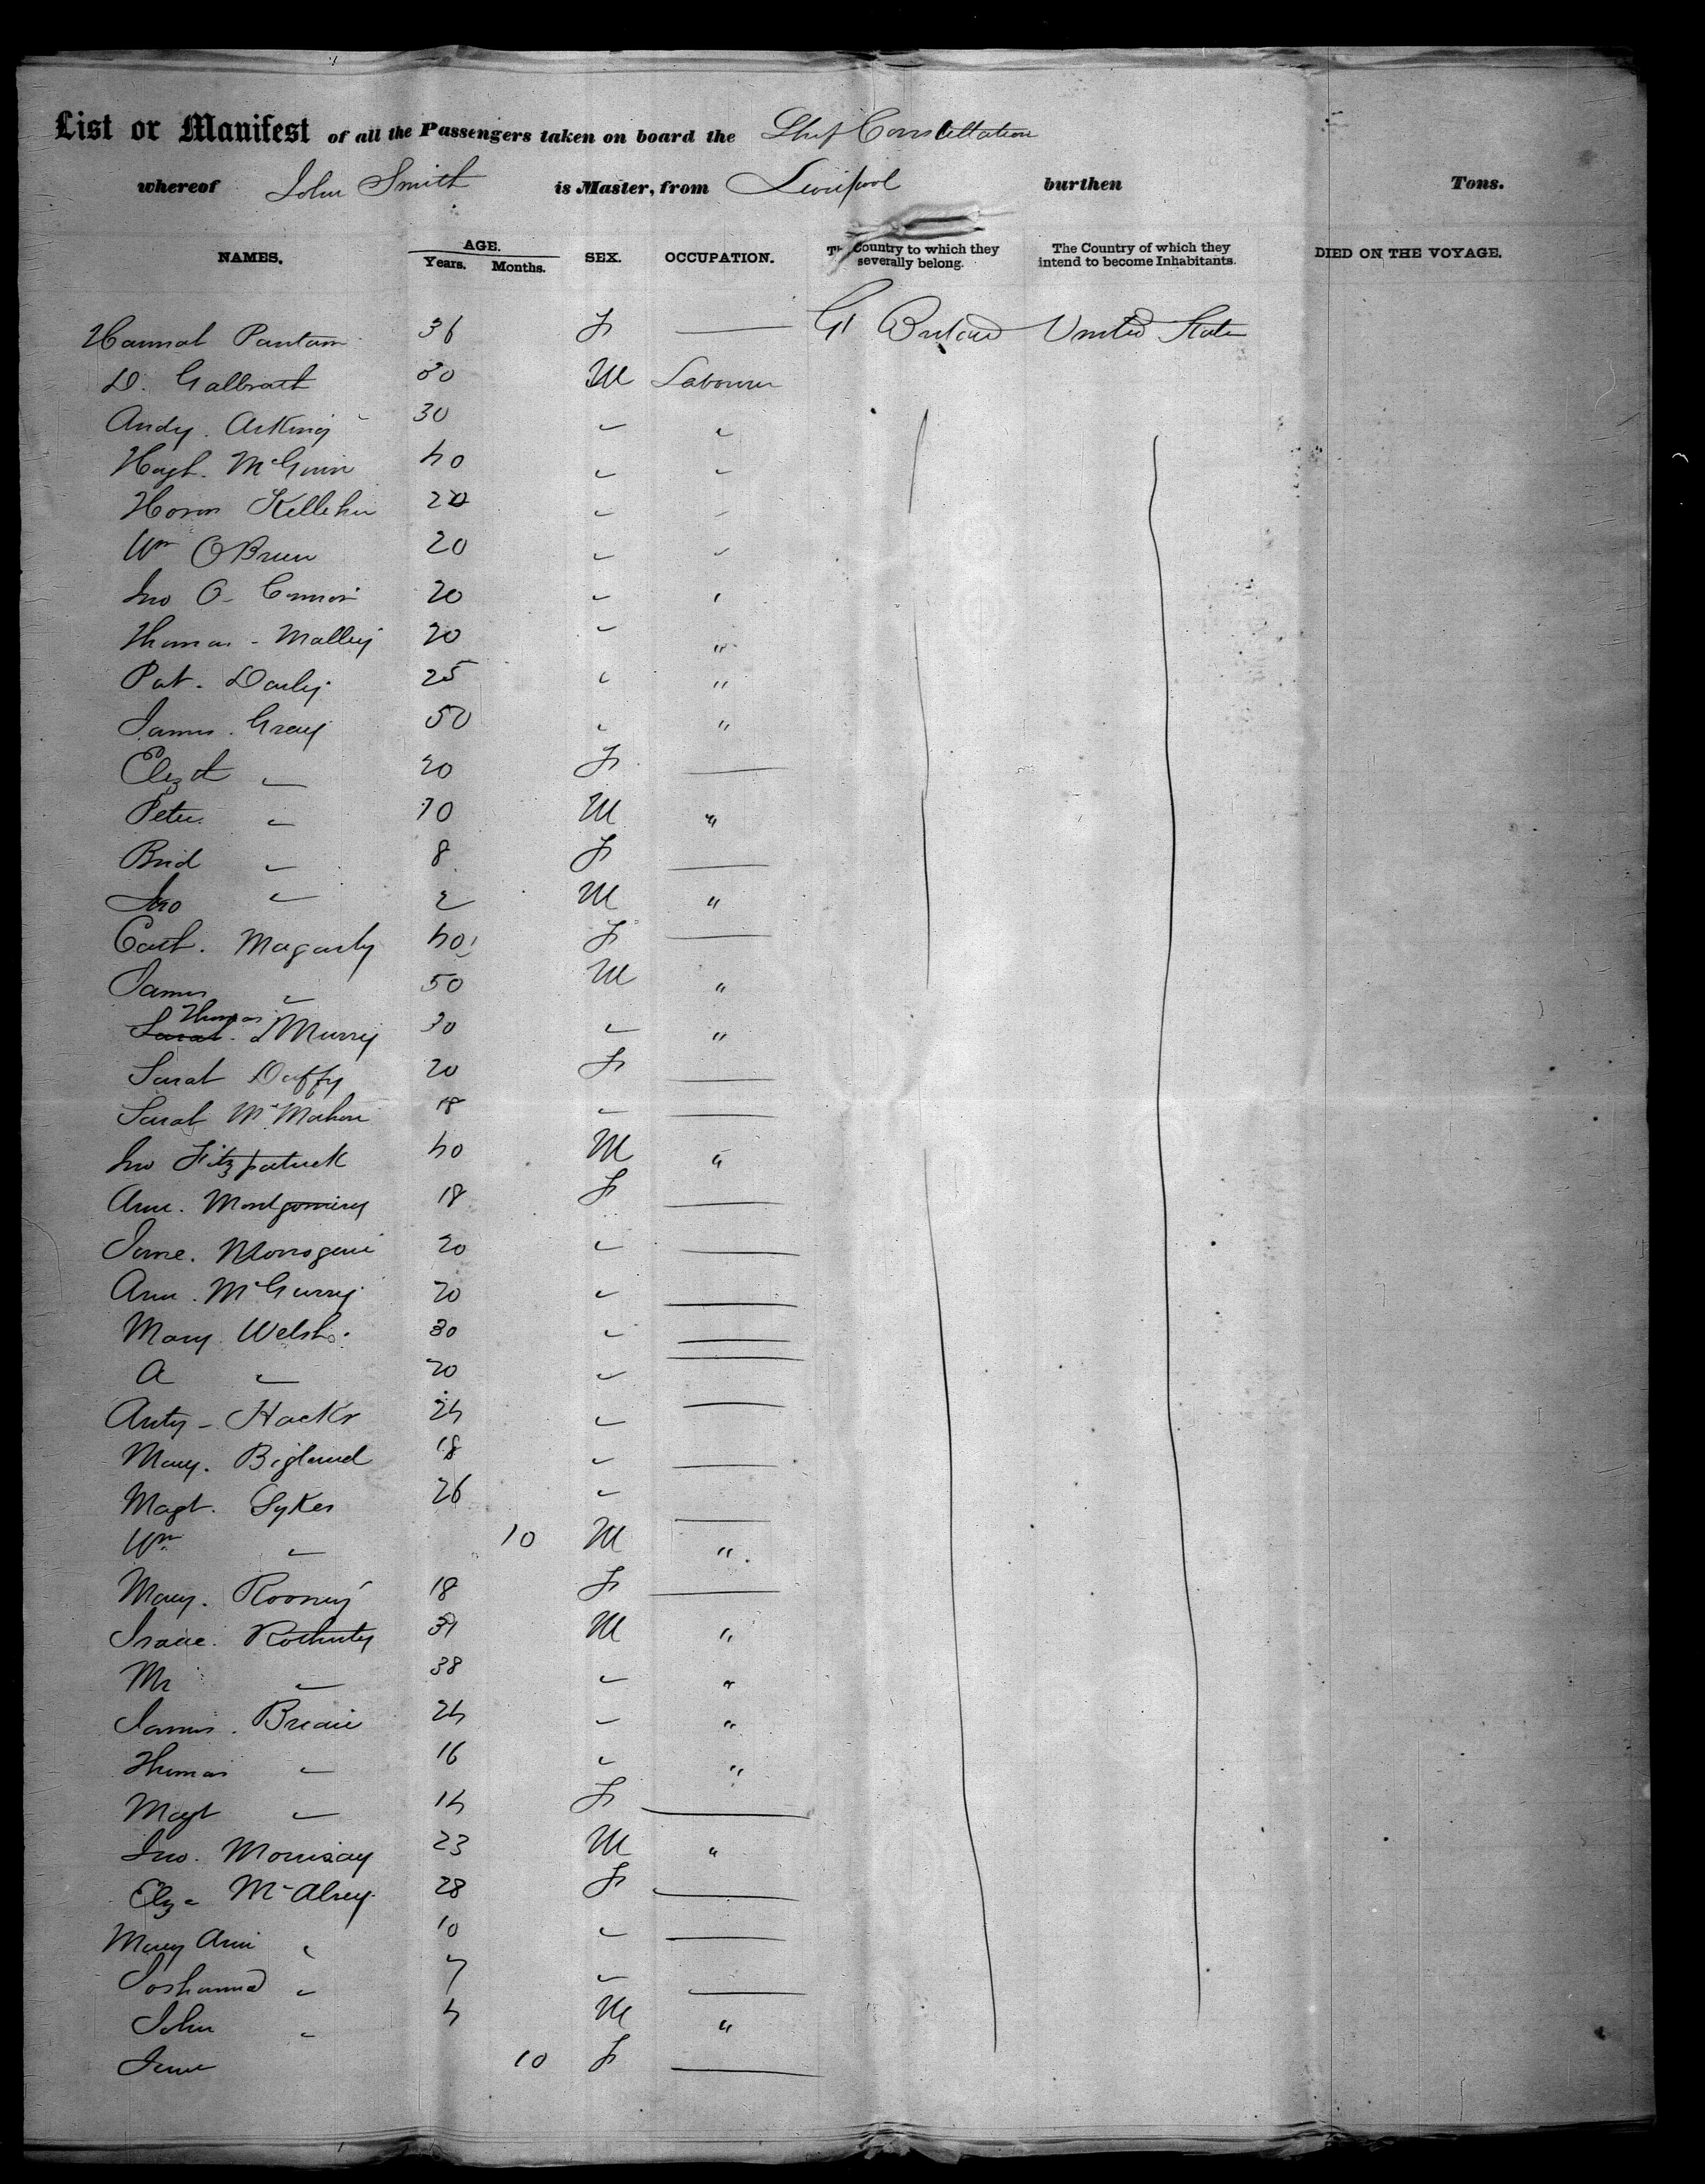 List or Manifest of all the Passengers taken on board the Ship Constellation
whereof John Smith is Master, from Liverpool burthen Tons.
NAMES. AGE. Years. Months. SEX. OCCUPATION. The Country to which they severally belong. The Country of which they intend to become Inhabitants. DIED ON THE VOYAGE.
Hannah 36 F — Gt Britain United States
D. Galbrath 30 M Labourer
Andy. 30 " "
Hugh. McGinn 40 " "
Kelleher 20 " "
Wm O Brien 20 " "
Jno O Connor 20 " "
Thomas - Malley 20 " "
Pat. Darly 25 " "
James. Gray 50 " "
Elizth " 20 F —
Peter " 10 M "
Brid " 8 F —
Jno " 2 M "
Cath. Magarty 40 F —
James " 50 M "
Thomas Murry 30 " "
Sarah Duffy 20 F —
Sarah McMahon 18 " —
Jno Fitzpatrick 40 M "
Ann. Montgomery 18 F —
Jane. 20 " —
Ann. McGurry 20 " —
Mary Welsh. 30 " —
A " 20 " —
Anty - 24 " —
Mary. Bigland 18 " —
Magt. Sykes 26 " —
Wm " 10 M "
Mary. Rooney 18 F —
Isaac. 31 M "
" 38 " "
James. 24 " "
Thomas " 16 " "
Magt " 14 F —
Jno. Morrisay 23 M "
Elza 28 F —
Mary Ann " 10 " —
" 7 " —
John " 4 M "
Jane 10 F —